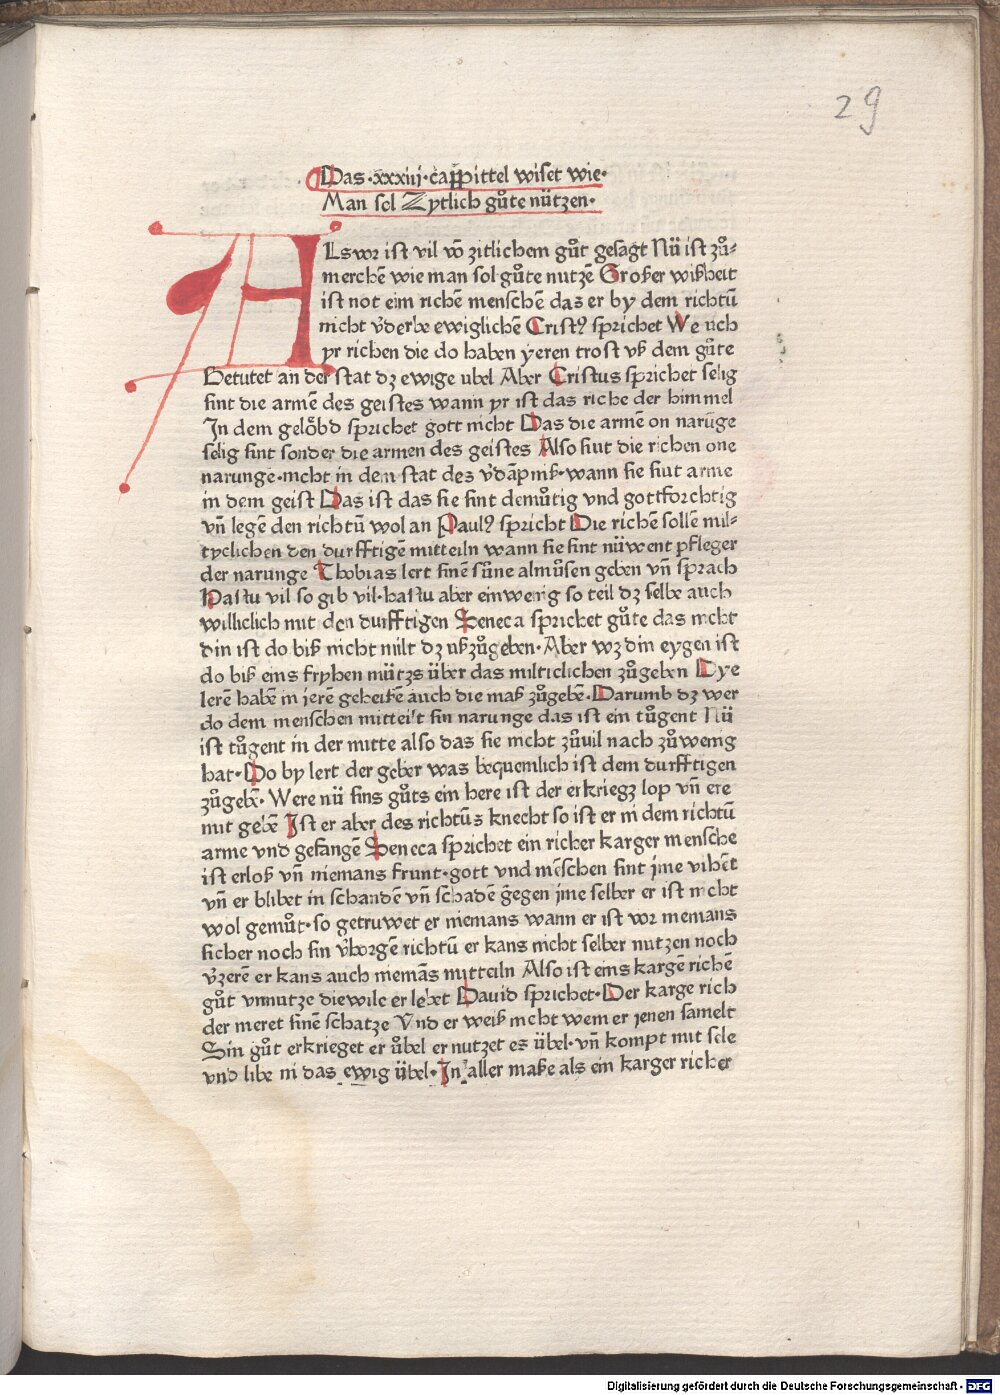 29
Das·xxxiij·cappittel wiset wie·
Man sol Zytlich gůte nützen·
ALswr ist vil vō zitlichem gůt gesagt Nü ist zů⸗
merchē wie man sol gůte nutzē Großer wißheit
ist not eim richē menschē daz er by dem richtū
nicht v̄derbe ewiglichē Crist9 sprichet We uch
yr richen die do haben yeren trost vß dem gůte
Betutet an der stat dz ewige ubel Aber Cristus sprichet selig
sint die armē des geistes wann yr ist das riche der himmel
In dem gelöbd sprichet gott nicht Das die armē on narüge
selig sint sonder die armen des geistes Also siut die richen one
narunge·nicht in dem stat des v̄dāpniß·wann sie siut arme
in dem geist Das ist das sie sint demůtig vnd gottforchtig
vn̄ legē den richtū wol an Paul9 spricht Die richē sollē mil⸗
tyclichen den durfftigē mitteiln wann sie sint nüwent pfleger
der narunge Thobias lert sinē sůne almůsen geben vn̄ sprach
Hastu vil so gib vil·hastu aber ein wenig so teil dz selbe auch
williclich mit den durfftigen Seneca sprichet gůte das nicht
din ist do biß nicht milt dz ußzůgeben·Aber wz din eygen ist
do biß eins fryhen mützs über das milticlichen zůgeben Dye
lerē habē in jerē geheißē auch die maß zůgebē·Darumb dz wer
do dem menschen mitteilt sin narunge das ist ein tůgent Nü
ist tůgent in der mitte also das sie nicht zůvil nach zůwenig
hat·Do by lert der geber was bequemlich ist dem durfftigen
zůgebē·Were nü sins gůts ein here ist der erkriegz lop vn̄ ere
mit gebē Ist er aber des richtūs knecht so ist er in dem richtū
arme vnd gefangē Seneca sprichet ein richer karger mensche
ist erloß vn̄ niemans frunt·gott vnd mēschen sint jme vihēt
vn̄ er blibet in schandē vn̄ schadē gegen jme selber er ist nicht
wol gemůt·so getruwet er niemans wann er ist vor niemans
sicher noch sin v̄borgē richtū er kans nicht selber nutzen noch
v̄zerē er kans auch niemās mitteiln Also ist eins kargē richē
gůt vnnutze diewile er lebet Dauid sprichet·Der karge rich
der meret sinē schatze Vnd er weiß nicht wem er jenen samelt
Sin gůt erkrieget er übel er nutzet es übel·vn̄ kompt mit sele
vnd libe in das ewig übel·In aller maße als ein karger richer
Digitalisierung gefördert durch die Deutsche Forschungsgemeinschaft - DFG